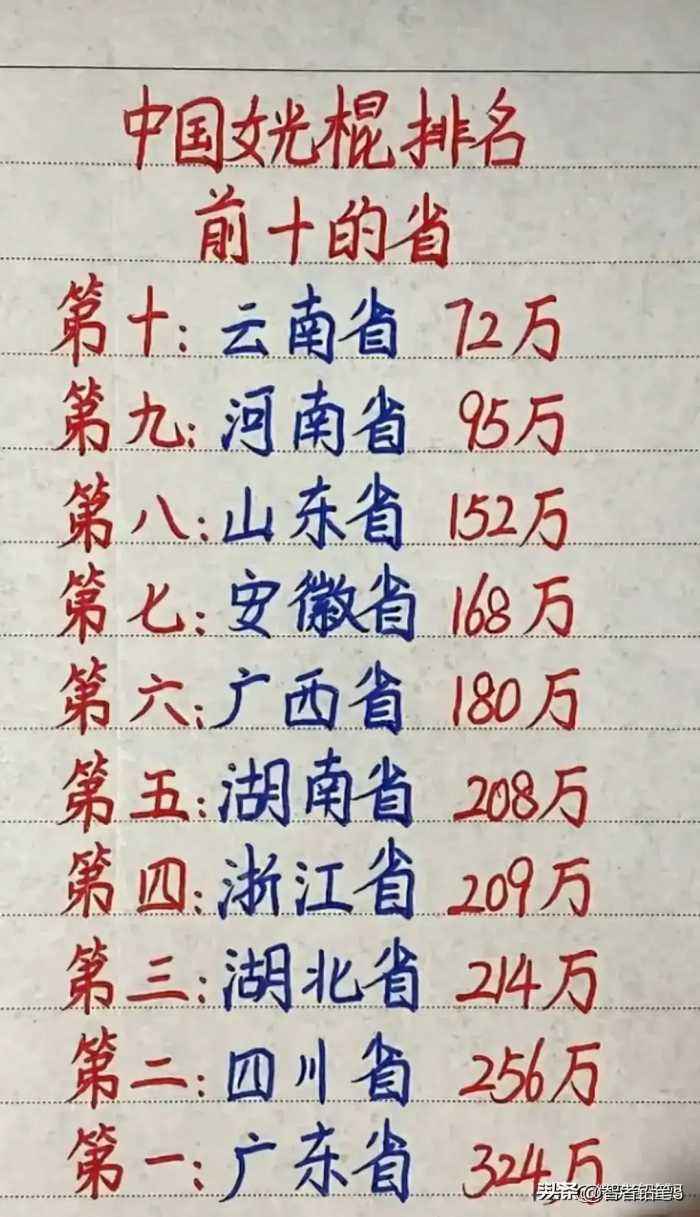 中国女光棍排名
前十的省
第十：云南省 72万
第九：河南省 95万
第八：山东省 152万
第七：安徽省 168万
第六：广西省 180万
第五：湖南省 208万
第四：浙江省 209万
第三：湖北省 214万
第二：四川省 256万
第一：广东省 324万
头条 @智者铅笔